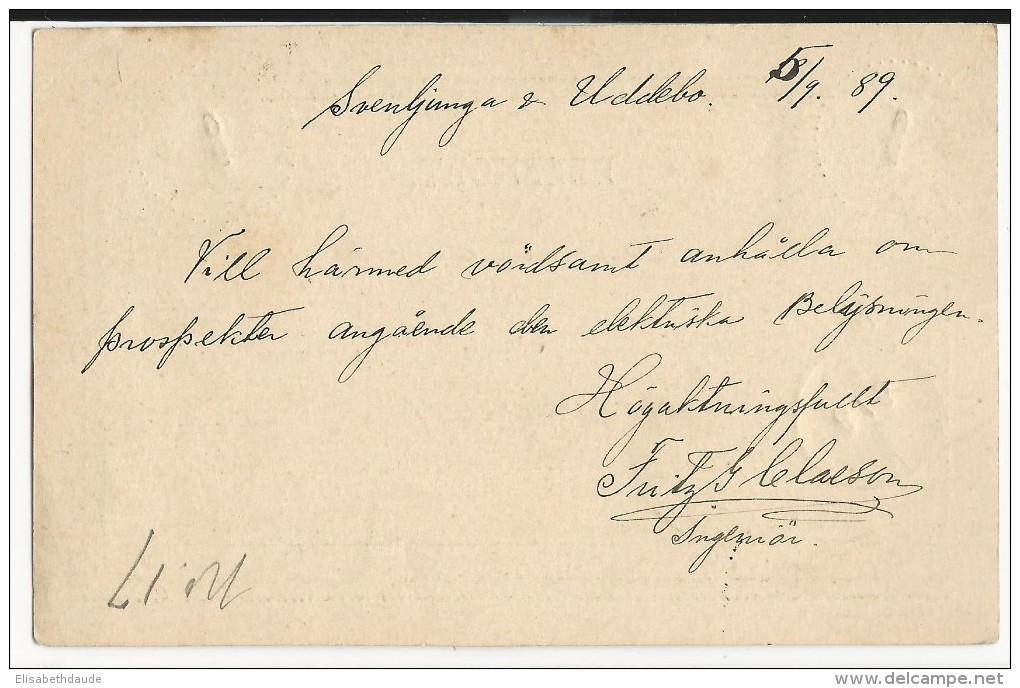 Svenljunga & Uddebo. 5/9. 89.
Vill härmed vördsamt anhålla om
prospekter angående den elektriska Belysningen.
Högaktningsfullt
Fritz G Claeson
Ingeniör.
Elisabethdaude
www.delcampe.net